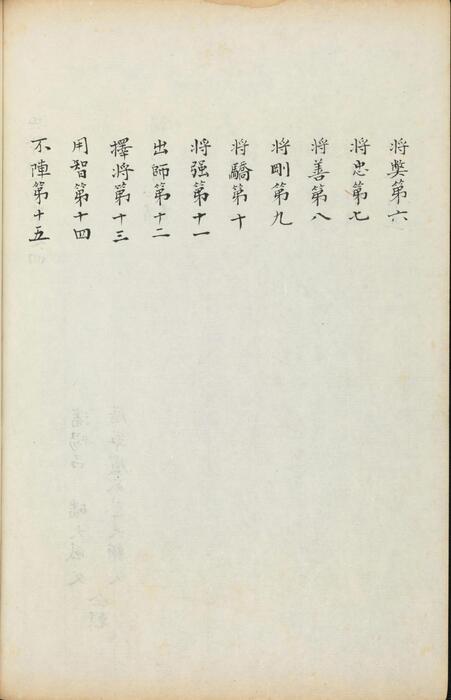 将獘第六
将忠第七
将善第八
将剛第九
将驕第十
将强第十一
出師第十二
擇将第十三
用智第十四
不陣第十五